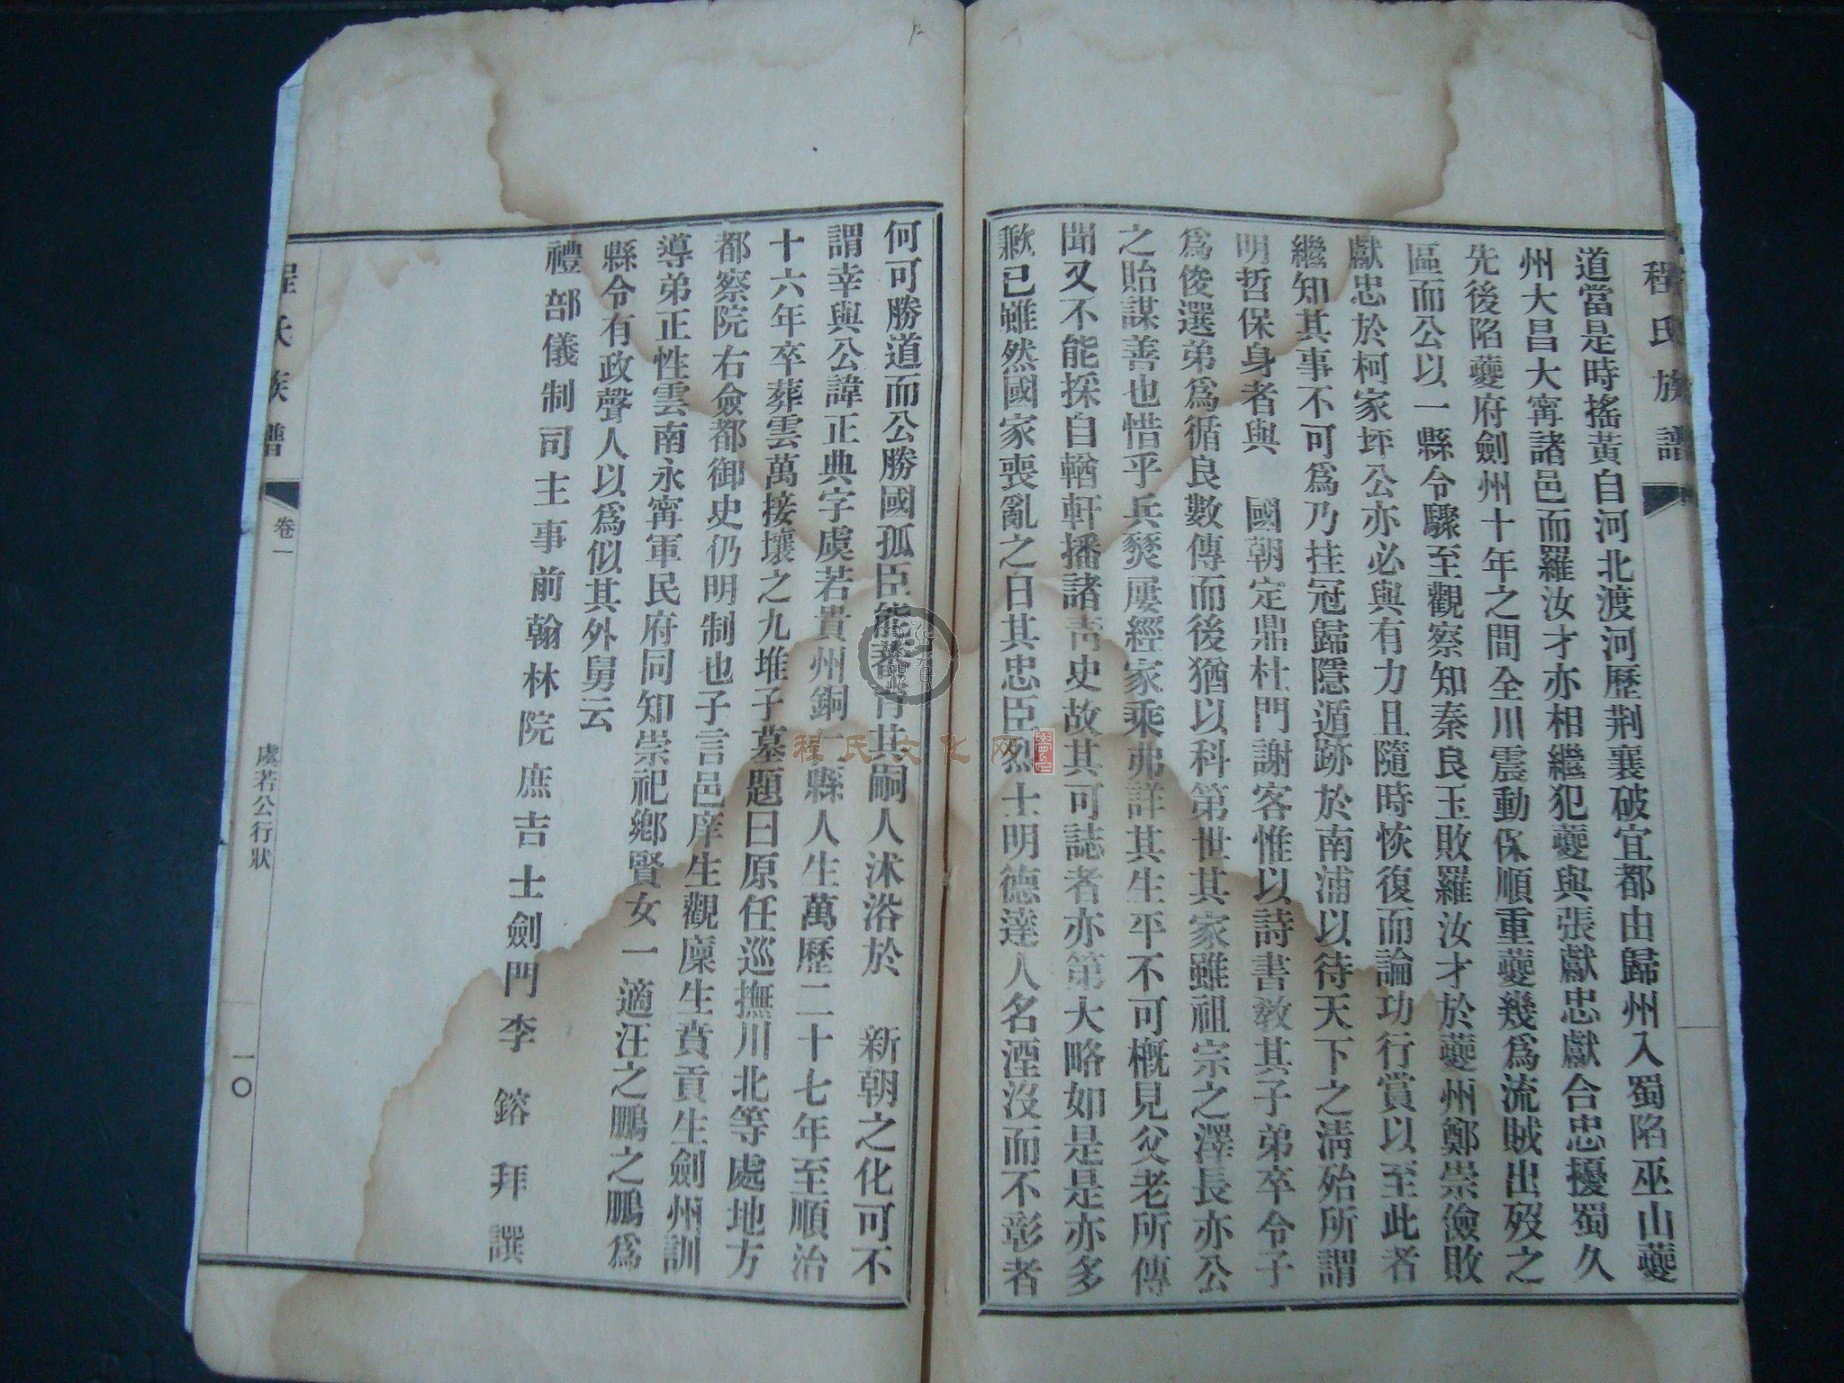 程氏族譜
道當是時搖黃自河北渡河歷荆襄破宜都由歸州入蜀陷巫山夔
州大昌大甯諸邑而羅汝才亦相繼犯夔與張獻忠獻合忠擾蜀久
先後陷夔府劍州十年之間全川震動保順重夔幾爲流賊出歿之
區而公以一縣令驟至觀察知秦良玉敗羅汝才於夔州鄭崇儉敗
獻忠於柯家坪公亦必與有力且隨時恢復而論功行賞以至此者
繼知其事不可爲乃挂冠歸隱遁跡於南浦以待天下之淸殆所謂
明哲保身者與 國朝定鼎杜門謝客惟以詩書敎其子弟卒令子
爲俊選弟爲循良數傳而後猶以科第世其家雖祖宗之澤長亦公
之貽謀善也惜乎兵燹屢經家乘弗詳其生平不可槪見父老所傳
聞又不能採自輶軒播諸靑史故其可誌者亦第大略如是是亦多
歉已雖然國家喪亂之白其忠臣烈士明德達人名湮沒而不彰者
何可勝道而公勝國孤臣能蓄育其嗣人沭浴於 新朝之化可不
謂幸與公諱正典字虞若貴州銅仁縣人生萬歷二十七年至順治
十六年卒葬雲萬接壤之九堆子墓題曰原任巡撫川北等處地方
都察院右僉都御史仍明制也子言邑庠生觀廩生賁貢生劍州訓
導弟正性雲南永甯軍民府同知崇祀鄕賢女一適汪之鵬之鵬爲
縣令有政聲人以爲似其外舅云
禮部儀制司主事前翰林院庶吉士劍門李鎔拜譔
程氏族譜
卷一
虞若公行狀
一〇
程氏文化网